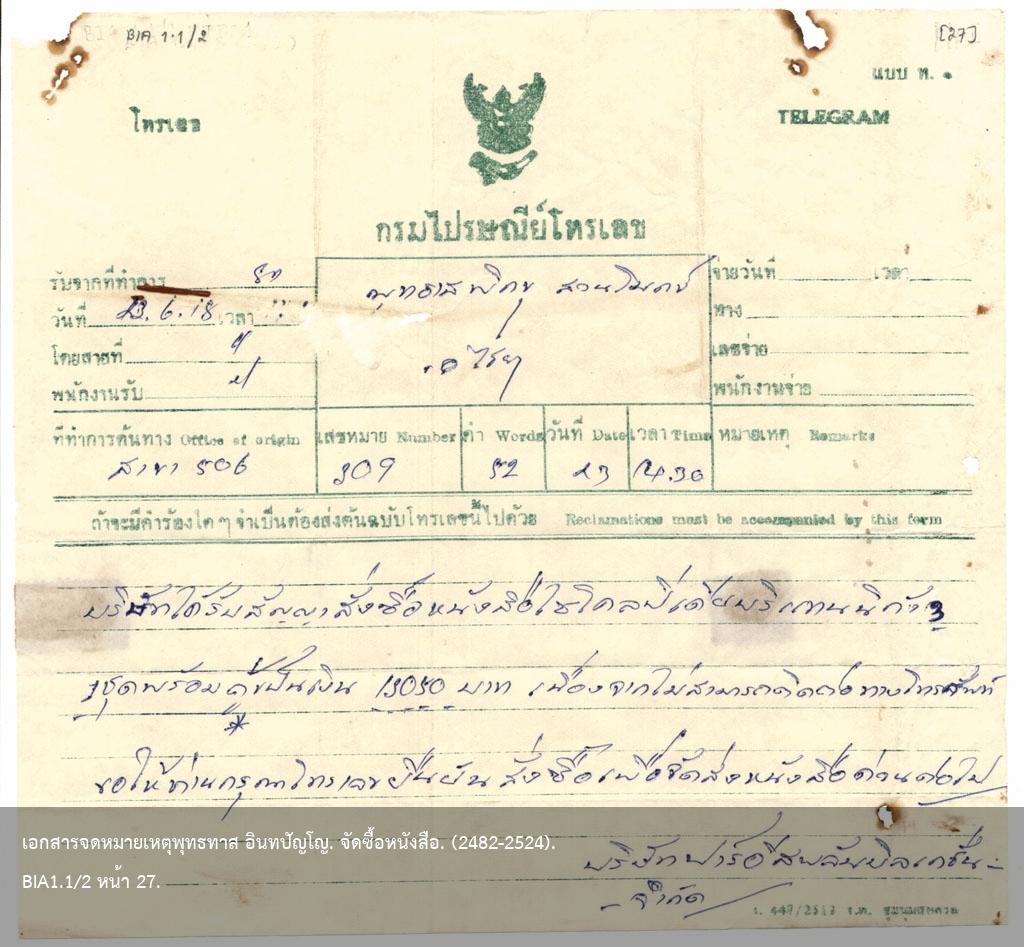 BIA 1.1/2
[27]
แบบ ท. ๑
โทรเลข
TELEGRAM
กรมไปรษณีย์โทรเลข
รับจากที่ทำการ
วันที่ 23.6.18 เวลา
โดยสายที่
พนักงานรับ
พุทธทาสภิกขุ สวนโมกข์
อ ไชยา
จ่ายวันที่ เวลา
ทาง
เลขจ่าย
พนักงานจ่าย
ที่ทำการต้นทาง Office of origin เลขหมาย Number คำ Words วันที่ Date เวลา Time หมายเหตุ Remarks
สาขา 506 309 52 23 14.30
ถ้าจะมีคำร้องใด ๆ จำเป็นต้องส่งต้นฉบับโทรเลขนี้ไปด้วย Reclamations must be accompanied by this form
บริษัทได้รับสัญญาสั่งซื้อหนังสือไซโคลปิเดียบริทานนิก้า 3
1 ชุดพร้อมตู้เป็นเงิน 13050 บาท เนื่องจากไม่สามารถติดต่อทางโทรศัพท์
ขอให้ท่านกรุณาโทรเลขยืนยันสั่งซื้อเพื่อจัดส่งหนังสือด่วนต่อไป
บริษัทฟาร์อีสพลับบลิเคชั่น-
-จำกัด
เอกสารจดหมายเหตุพุทธทาส อินทปัญโญ. จัดซื้อหนังสือ. (2482-2524).
BIA1.1/2 หน้า 27.